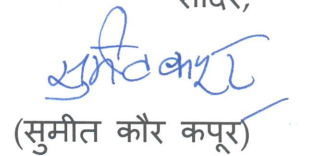 सादर,
सुमीत कपूर
(सुमीत कौर कपूर)